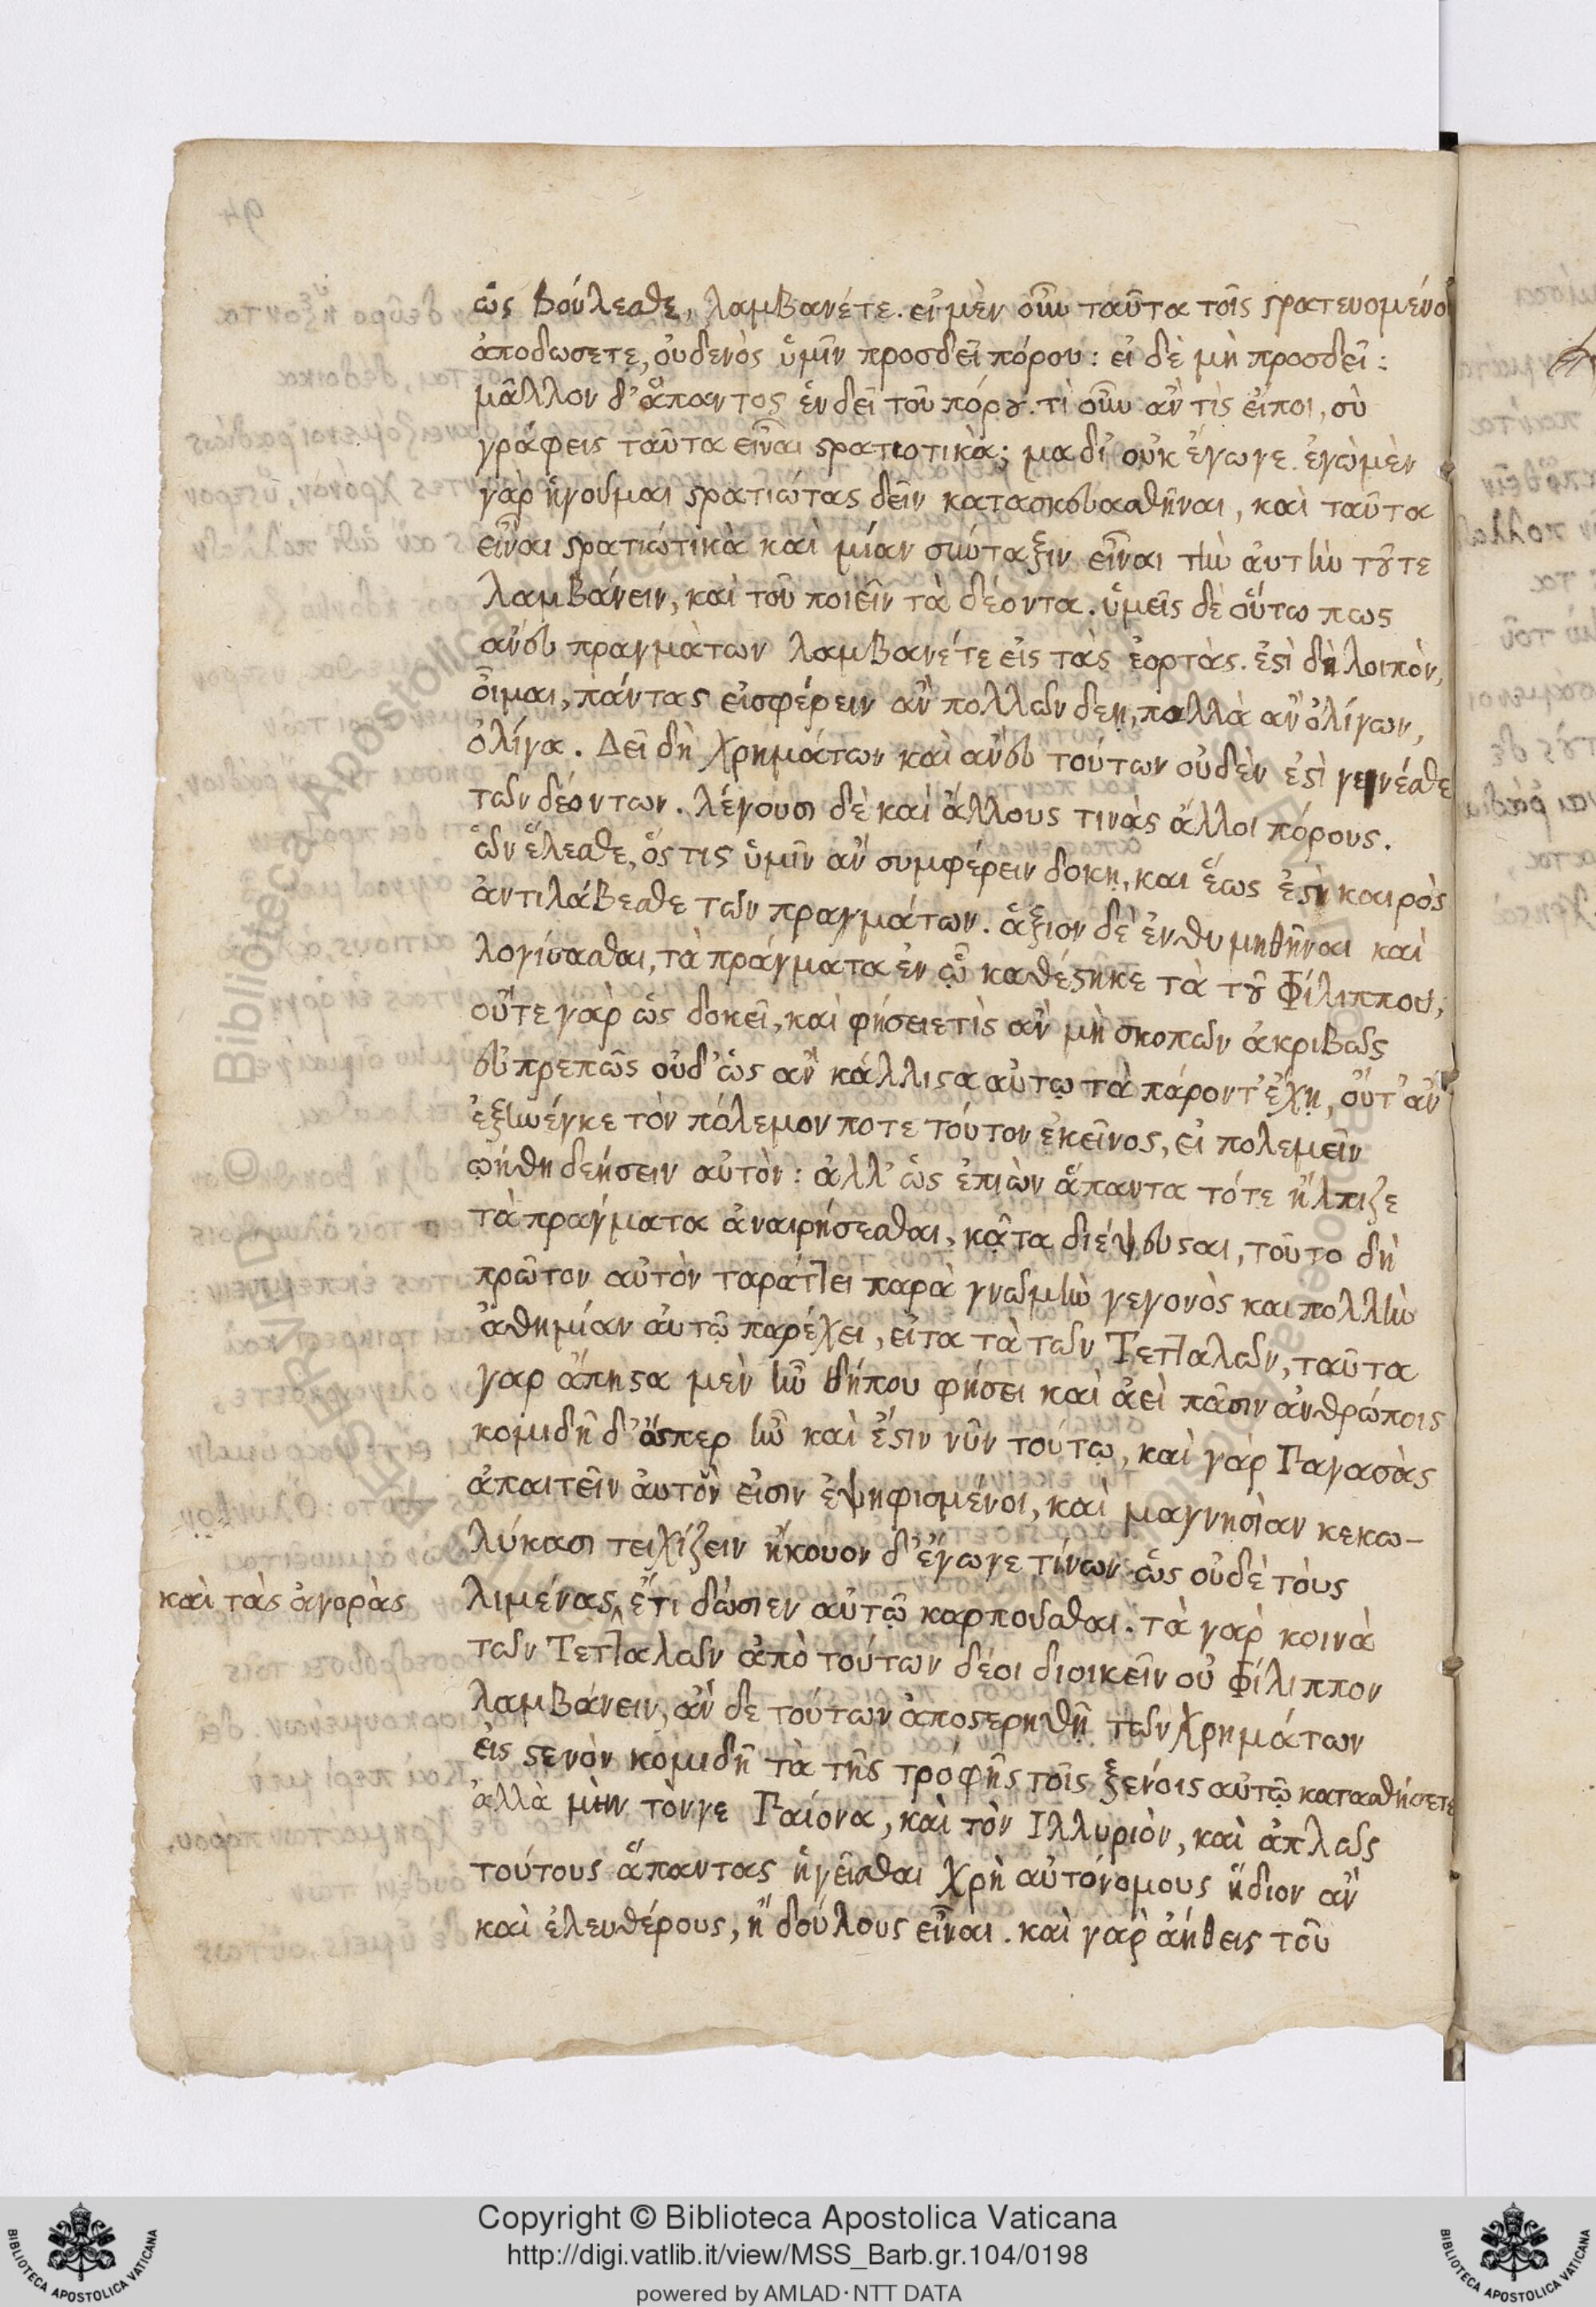 ὡς βούλεσθε, λαμβανέτε. εἰ μὲν οὖν ταῦτα τοῖς στρατευομένο
ἀποδωσετε, οὐδενὸς ὑμῖν προσδεῖ πόρου: εἰ δὲ μὴ προσδεῖ:
μᾶλλον δ' ἅπαντος ἐνδεῖ τοῦ πόρου. τὶ οὖν αν τὶς εἴποι, σὺ
γράφεις ταῦτα εἶναι στρατιοτικὰ; μα δί' οὐκ ἔγωγε. ἐγὼ μὲν
γὰρ ἡγοῦμαι στρατιώτας δεῖν κατασκευασθῆναι, καὶ ταῦτα
εἶναι στρατιώτικὰ καὶ μίαν σύνταξιν εἶναι τὴν ἀυτὴν τοῦτε
λαμβάνειν, καὶ τοῦ ποιεῖν τὰ δέοντα. ὑμεῖς δὲ οὕτω πως
ανευ πραγμὰτων λαμβανέτε εἰς τὰς ἑορτὰς. ἐστὶ δὴ λοιπὸν,
οἶμαι, πάντας εἰσφέρειν αν πολλῶν δεη, πολλὰ αν ὀλίγων,
ὀλίγα. Δεῖ δὴ χρημάτων καὶ ανευ τούτων οὐδὲν ἐστὶ γεννέσθε
τῶν δεόντων. λέγουσι δὲ καὶ ἄλλους τινὰς ἄλλοι πόρους.
ὧν ἕλεσθε, ὅς τις ὑμῖν αν συμφέρειν δοκῃ, και ἕως ἐστὶν καιρὸς
ἀντιλάβεσθε τῶν πραγμάτων. ἄξιον δὲ ἐνθυμηθῆναι καὶ
λογίσασθαι, τὰ πράγματα ἐν ᾧ καθέστηκε τὰ τοῦ Φίλιππου,
οὔτε γὰρ ὡς δοκεῖ, καὶ φήσειετὶς αν μὴ σκοπῶν ἀκριβῶς
ευπρεπῶς οὐδ' ὡς αν κάλλιστα αὐτῳ τὰ πάροντ' ἔχῃ, οὔτ' αν
ἐξήνεγκε τὸν πόλεμον ποτε τούτον ἐκεῖνος, εἰ πολεμεῖν
ᾠήθη δεήσειν αὐτὸν: ἀλλ' ὡς ἐπιὼν ἅπαντα τότε ἤλπιζε
τὰ πραγματα ἀναιρήσεσθαι, κᾆτα διέψευσται, τοῦτο δὴ
πρῶτον αὐτὸν ταράττει παρὰ γνώμην γεγονὸς και πολλὴν
ἀθημίαν ἀυτῷ παρέχει, εἶτα τὰ τῶν Τετταλῶν, ταῦτα
γαρ ἄπηστα μὲν ἦν δήπου φήσει καὶ ἀεὶ πᾶσιν ἀνθρώποις
κομιδῆ δ' ὥσπερ ἦν καὶ ἔστιν νῦν τούτῳ, καὶ γὰρ Παγασὰς
ἀπαιτεῖν ἀυτὸν εἰσιν ἐψηφισμένοι, καὶ μαγνησίαν κεκω-
λύκασι τειχίζειν ἤκουον δ' ἔγωγε τίνων ὡς οὐδὲ τοὺς
καὶ τὰς ἀγορὰς
λιμένας ἔτι δώσιεν αὐτῷ καρποῦσθαι. τὰ γαρ κοινὰ
τῶν Τετταλῶν ἀπὸ τούτων δέοι διοικεῖν οὐ Φίλιππον
λαμβάνειν, αν δε τούτων ἀποστερηθῇ τῶν χρημάτων
εἰς στενὸν κομιδῆ τὰ τῆς τροφῆς τοῖς ξενόις αὐτῷ καταστήσετε
ἀλλὰ μὴν τόνγε Παίονα, καὶ τὸν Ιλλυριὸν, καὶ ἁπλῶς
τούτους ἅπαντας ἡγεῖσθαι χρὴ αὐτόνομους ἥδιον αν
καὶ ἐλευθέρους, ἢ δούλους εἶναι. καὶ γαρ ἀήθεις τοῦ
© Biblioteca Apostolica Vaticana
Copyright © Biblioteca Apostolica Vaticana
http://digi.vatlib.it/view/MSS_Barb.gr.104/0198
powered by AMLAD·NTT DATA
BIBLIOTECA APOSTOLICA VATICANA
BIBLIOTECA APOSTOLICA VATICANA